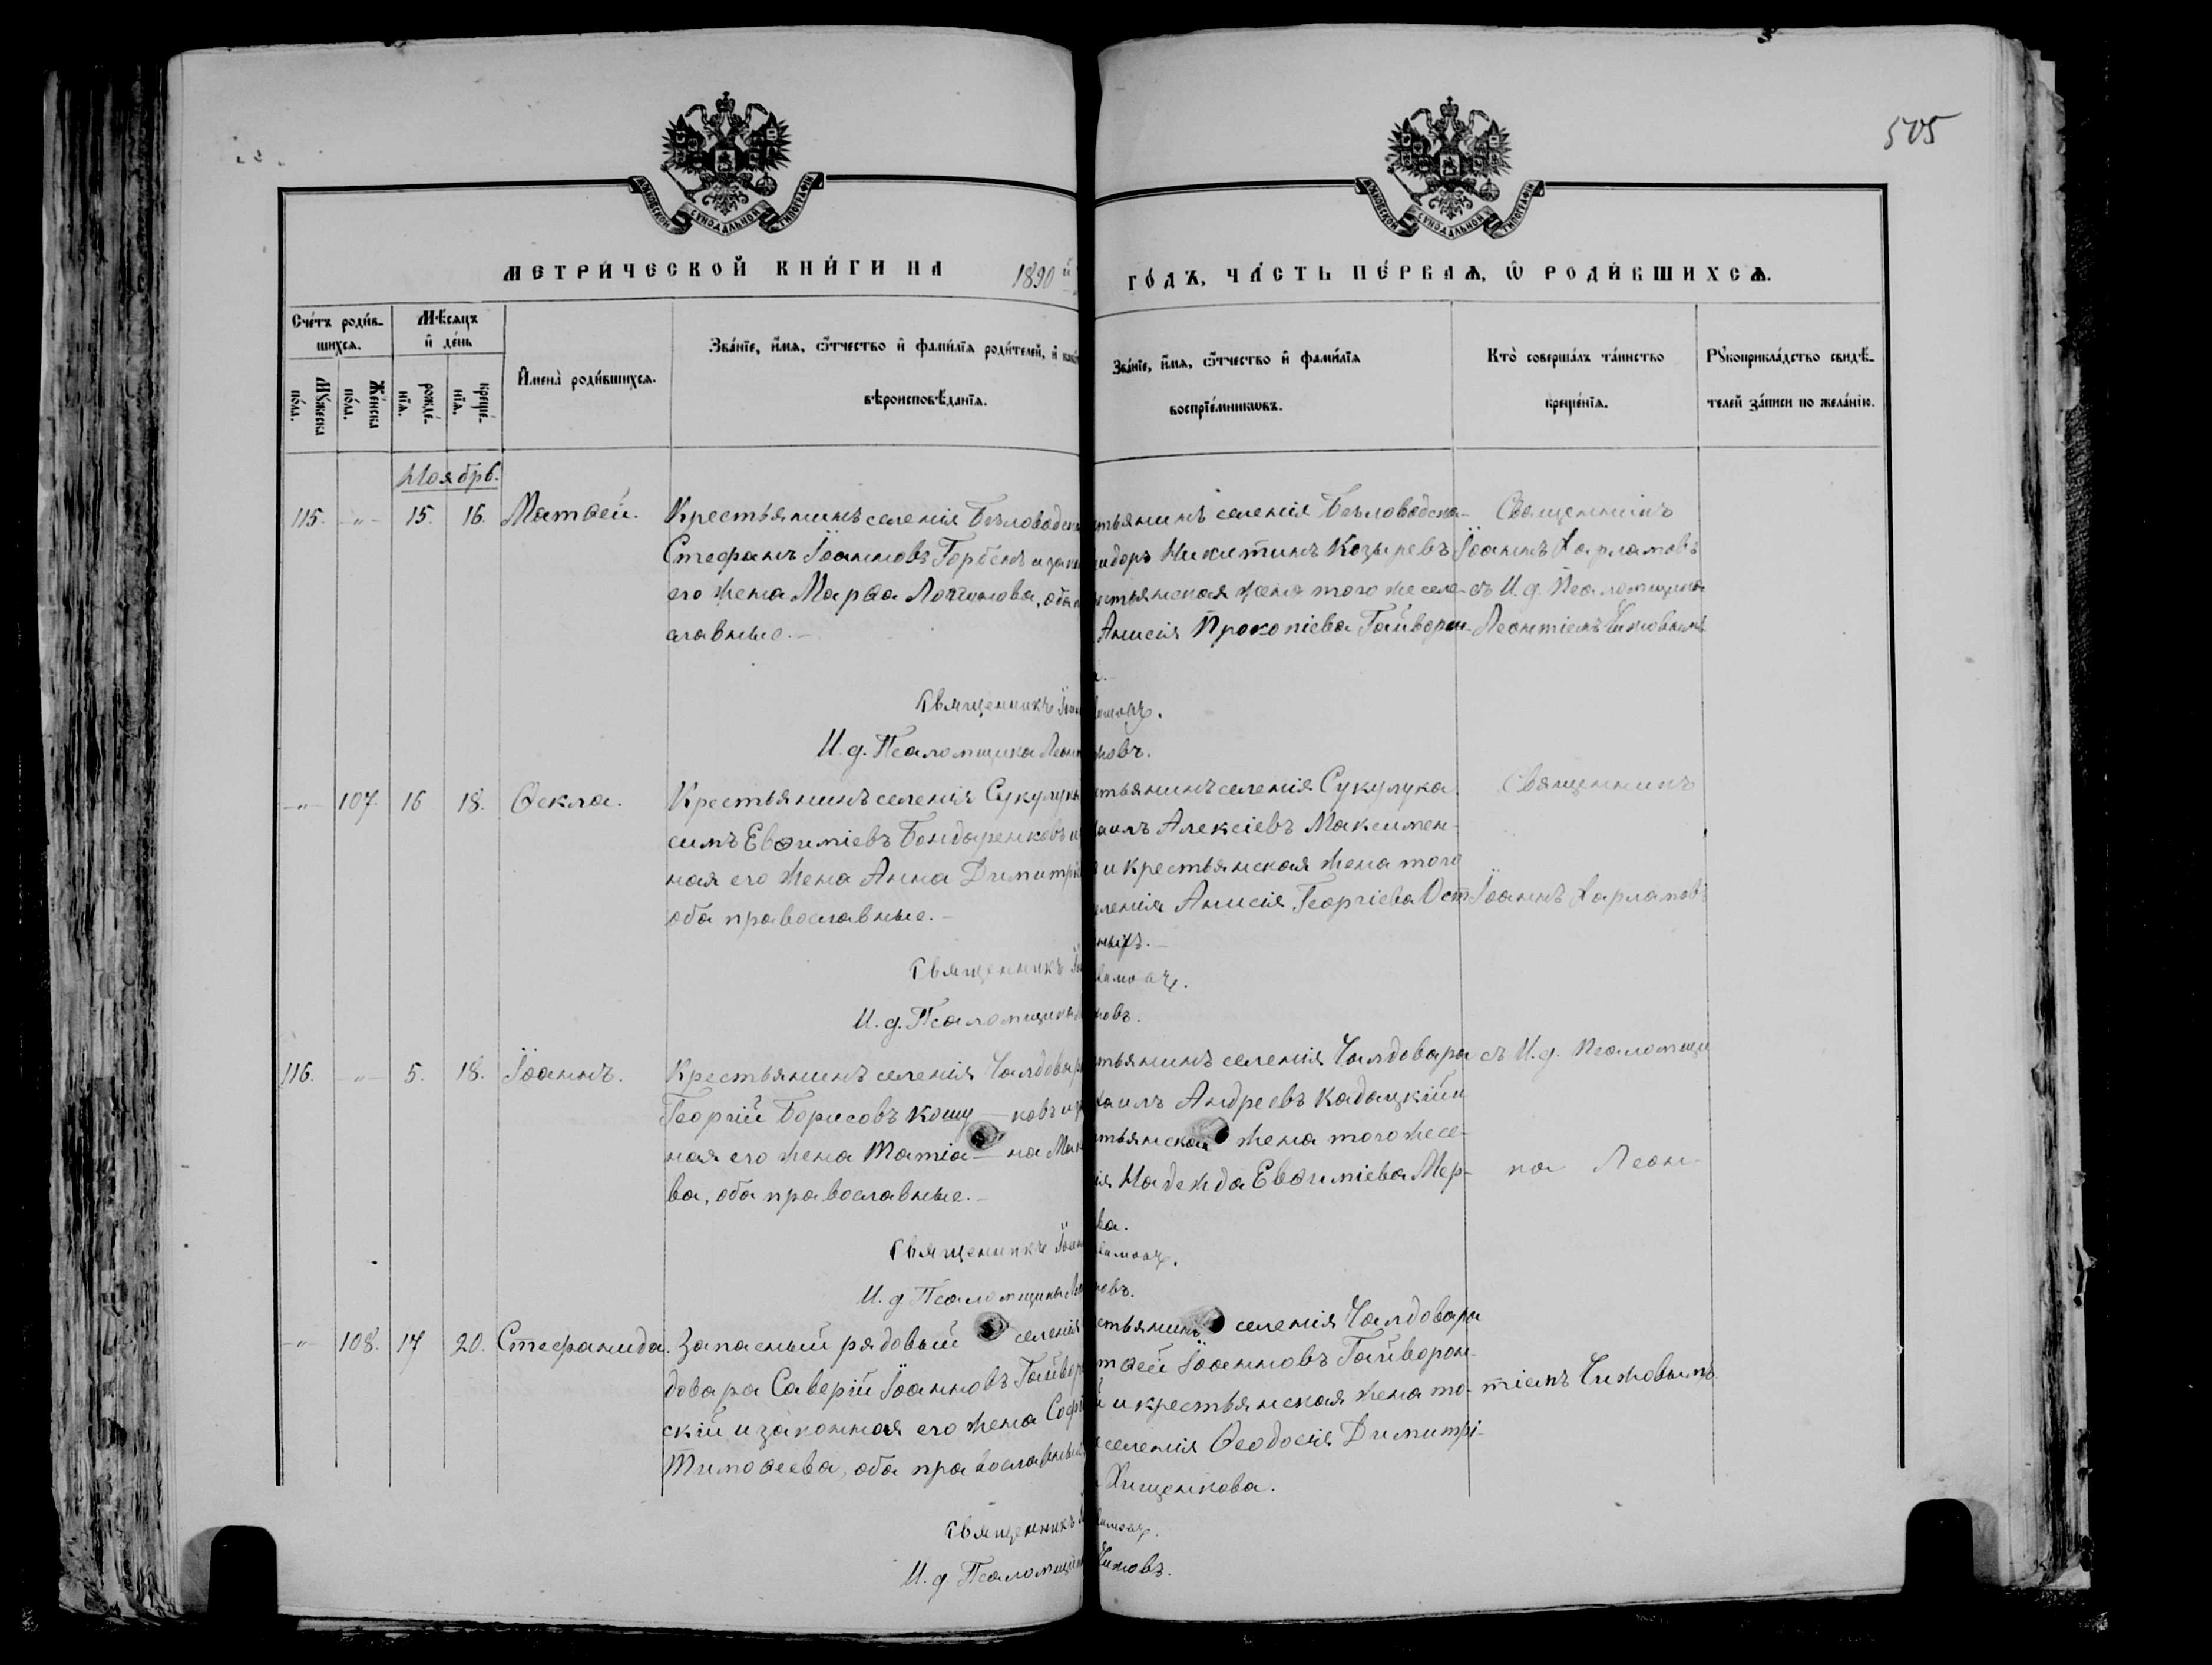 505
МОСКОВСКОЙ СѴНОДАЛЬНОЙ ТИПОГРАФІИ
МОСКОВСКОЙ СѴНОДАЛЬНОЙ ТИПОГРАФІИ
МЕТРИ́ЧЕСКОЙ КНИ́ГИ НА 1890 й
ГО́ДЪ, ЧА́СТЬ ПЕ́РВАѦ, Ѡ҆ РОДИ́ВШИХСѦ.
Сче́тъ роди́в-
шихсѧ.
Мꙋ́жеска по́ла.
Же́нска по́ла.
Мѣ́сѧцъ и҆ де́нь
рожде́-нїѧ.
креще́-нїѧ.
И҆мена̀ роди́вшихсѧ.
Зва́нїе, и҆́мѧ, ѻ҆́тчество и҆ фами́лїѧ роди́телей, и҆
вѣроисповѣ́данїѧ.
Зва́нїе, и҆́мѧ, ѻ҆́тчество и҆ фами́лїѧ
воспрїе́мникѡвъ.
Кто̀ соверша́лъ та́инство
креще́нїѧ.
Рꙋкоприкла́дство свидѣ́-
телей за́писи по жела́нїю.
Ноябрь.
115. -„- 15. 16. Матѳей. Крестьянинъ селенія Бѣловодска
Стефанъ Іоанновъ Горбенъ и зако
его жена Марѳа Логгинова, оба
славные.-
Священникъ Іоан
И. д. Псаломщика Леон
тьянинъ селенія Бѣловодска-
идоръ Никитинъ Козыревъ
стьянская жена того же селе-
Анисія Прокопіева Гайворон-
а.
ламовъ.
жовъ.
Священникъ
Іоаннъ Харламовъ
съ И. д. Псаломщика
Леонтіемъ Чижовымъ
-„- 107. 16 18. Ѳекла. Крестьянинъ селенія Сукулука
симъ Евѳиміевъ Бондаренковъ и
ная его жена Анна Димитріе
оба православные.-
Священникъ Іо
И. д. Псаломщика
тьянинъ селенія Сукулука
аилъ Алексіевъ Максимен-
и крестьянская жена того
еленія Анисія Георгіева Ост
ныхъ.-
ламовъ.
жовъ.
Священникъ
Іоаннъ Харламовъ
116. -„- 5. 18. Іоаннъ. Крестьянинъ селенія Чалдовара
Георгій Борисовъ Кошу-ковъ и з
ная его жена Татіа-на Мак
ва, оба православные.-
Священникъ Іоан
И. д. Псаломщика Лео
тьянинъ селенія Чалдовара
хаилъ Андреевъ Кадацкій и
тьянская жена того же се-
ія Надежда Евѳиміева Мер-
ва.
ламовъ.
жовъ.
съ И. д. Псаломщи
ка Леон-
-„- 108. 17 20. Стефанида. Запасный рядовый селенія
довара Саверій Іоанновъ Гайвор
скій и законная его жена Софі
Тимоѳеева, оба православные
Священникъ
И. д. Псаломщика
стьянинъ селенія Чалдовара
тѳей Іоанновъ Гайворон-
й и крестьянская жена то-
селенія Ѳеодосія Димитрі-
Хищенкова.
ламовъ.
Чижовъ.
тіемъ Чижовымъ.